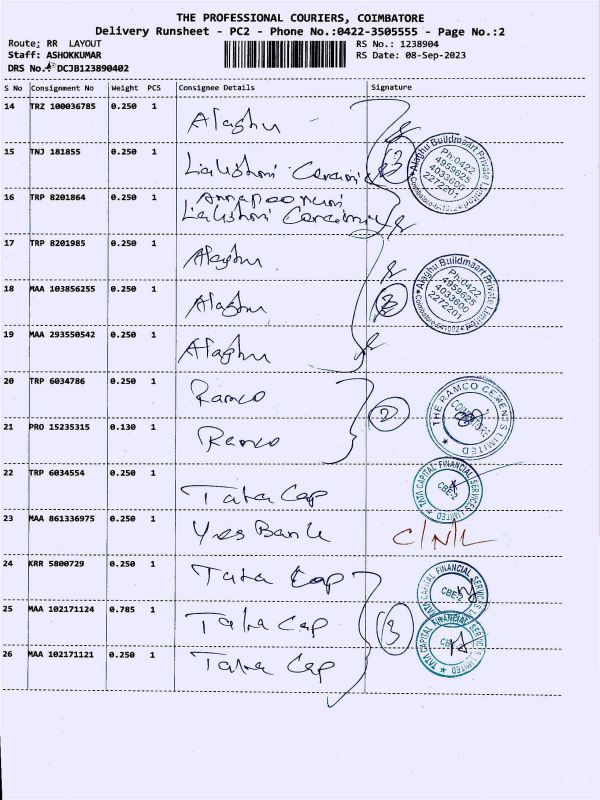 THE PROFESSIONAL COURIERS, COIMBATORE
Delivery Runsheet - PC2 - Phone No.:0422-3505555 - Page No.:2
Route: RR LAYOUT RS No.: 1238904
Staff: ASHOKKUMAR RS Date: 08-Sep-2023
DRS No.: DCJB123890402
S No Consignment No Weight PCS Consignee Details Signature
14 TRZ 100036785 0.250 1 Alaghu
15 TNJ 181855 0.250 1 Lakshmi Ceramics
16 TRP 8201864 0.250 1 Annapoorani
Lakshmi Ceramics
(3)
Alaghu Buildmaart Private Limited
Ph:0422
4959625
4033600
2272201
17 TRP 8201985 0.250 1 Alaghu
18 MAA 103856255 0.250 1 Alaghu
19 MAA 293550542 0.250 1 Alaghu
(3)
Alaghu Buildmaart Private Limited
Ph:0422
4959625
4033600
2272201
20 TRP 6034786 0.250 1 Ramco
21 PRO 15235315 0.130 1 Ramco
(2)
THE RAMCO CEMENTS LIMITED
22 TRP 6034554 0.250 1 Tata Cap
TATA CAPITAL FINANCIAL SERVICES LIMITED
CBE-2
23 MAA 861336975 0.250 1 Yes Bank C/N/L
24 KRR 5800729 0.250 1 Tata Cap
25 MAA 102171124 0.785 1 Tata Cap
26 MAA 102171121 0.250 1 Tata Cap
(3)
TATA CAPITAL FINANCIAL SERVICES LIMITED
CBE-2
TATA CAPITAL FINANCIAL SERVICES LIMITED